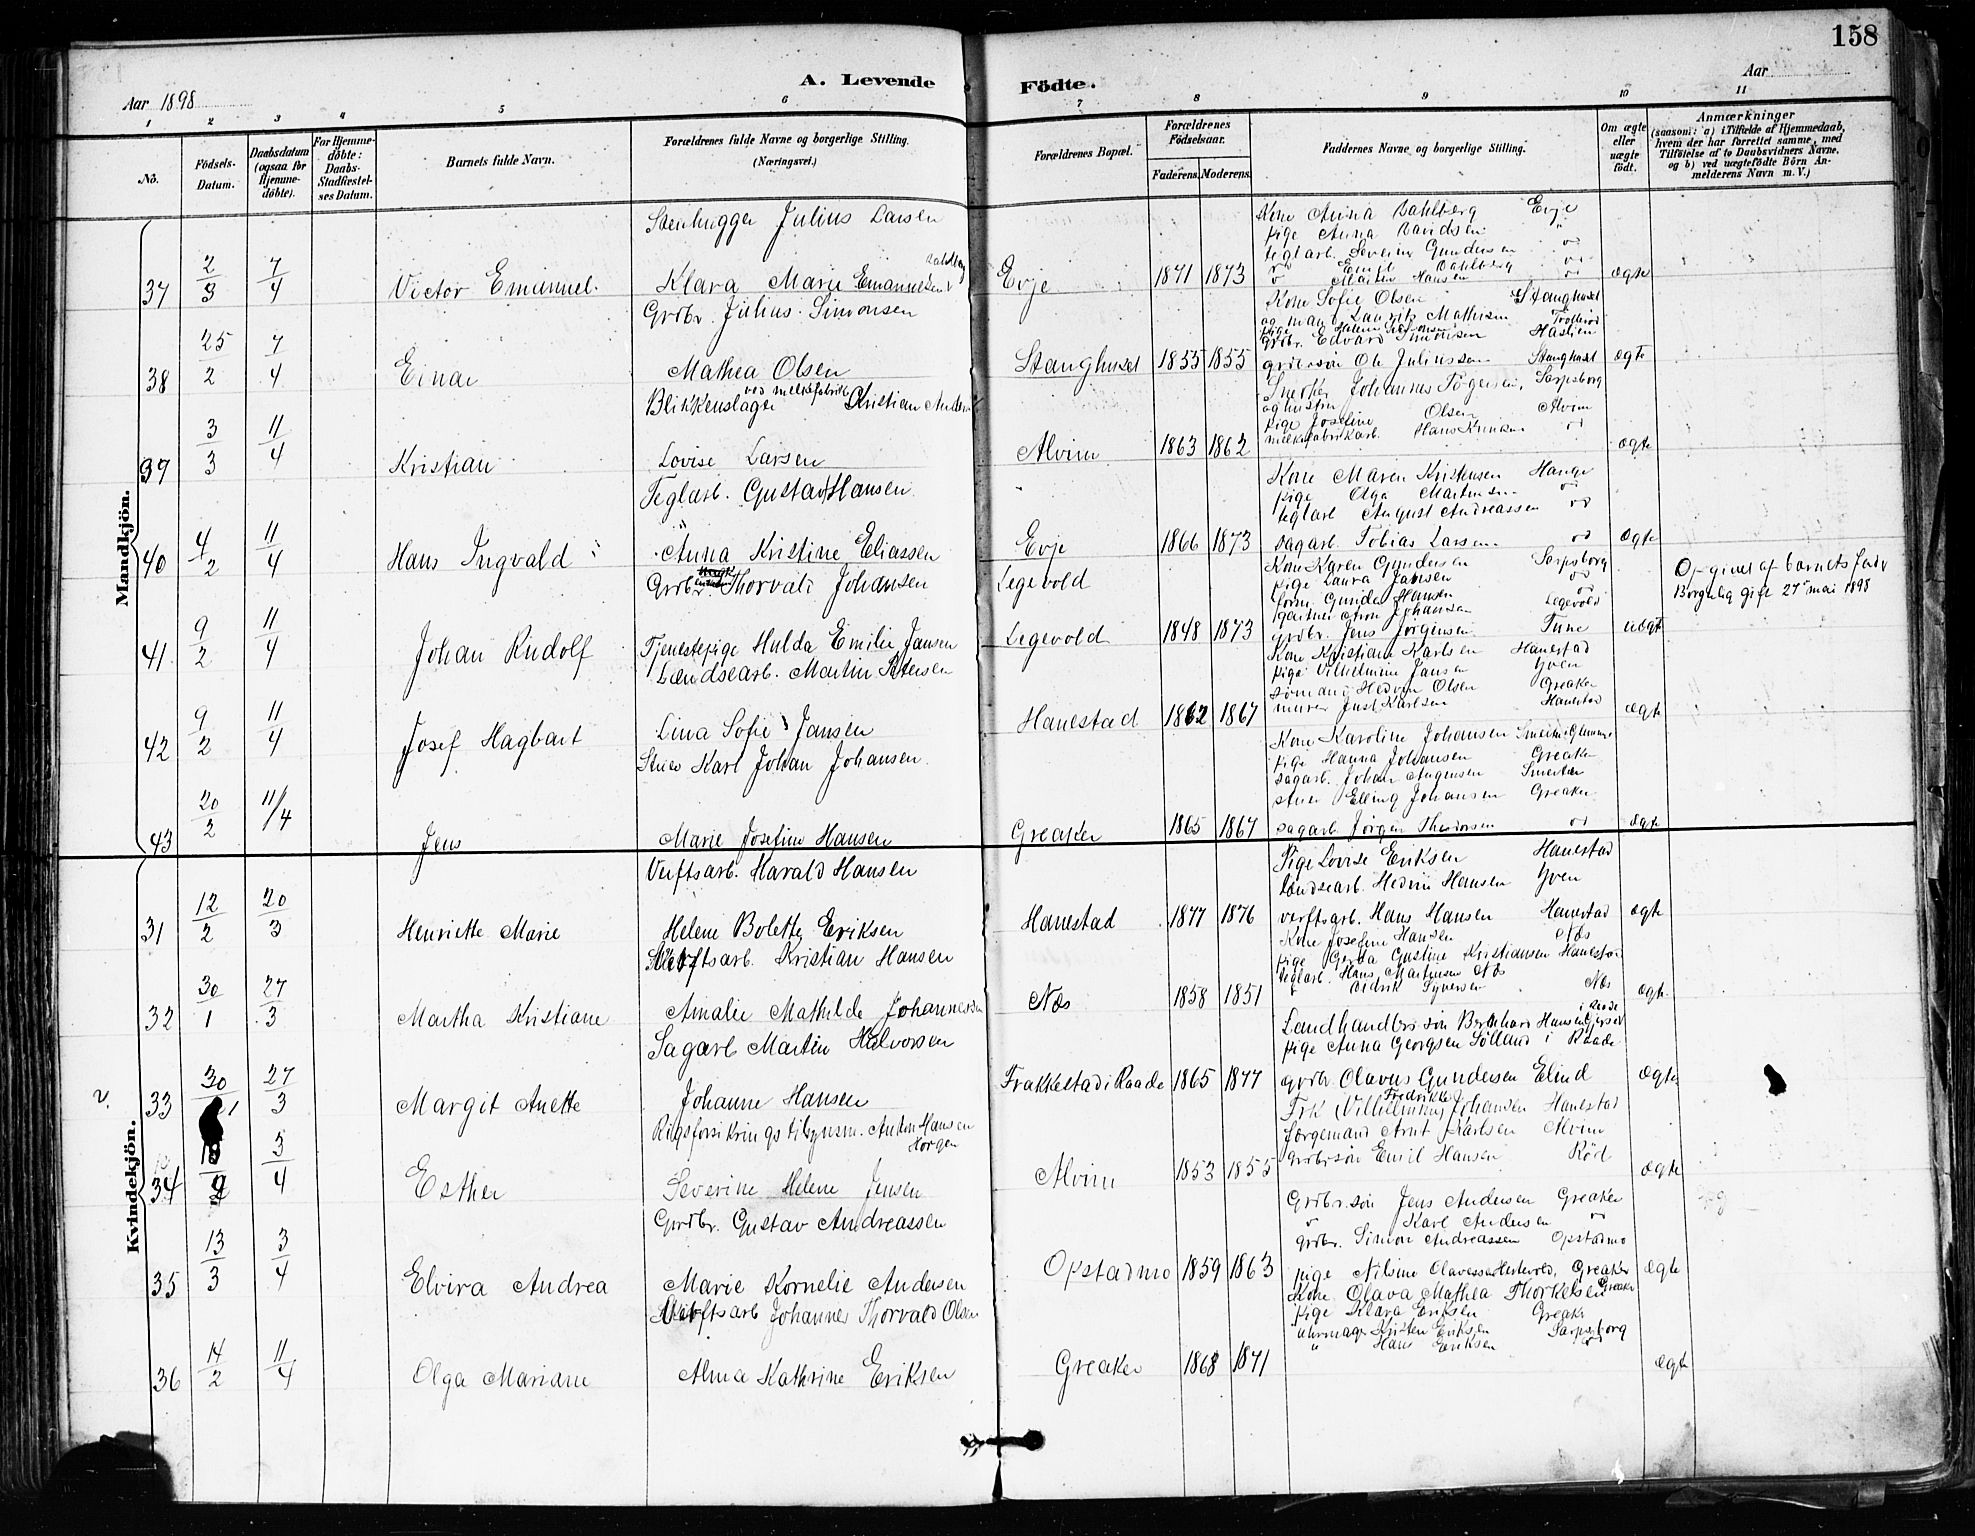 158
A. Levende Födte.
Aar 1898
Aar
1 2 3 4 5 6 7 8 9 10 11
No.
Födsels-Datum.
Daabsdatum (ogsaa for Hjemme-döbte).
For Hjemme-döbte: Daabs-Stadfæstelses Datum.
Barnets fulde Navn.
Forældrenes fulde Navne og borgerlige Stilling. (Næringsvei.)
Forældrenes Bopæl.
Forældrenes Födselsaar.
Faderens. Moderens.
Faddernes Navne og borgerlige Stilling.
Om ægte eller uægte födt.
Anmærkninger
(saasom: a) i Tilfælde af Hjemmedaab, hvem der har forrettet samme, med Tilföielse af to Daabsvidners Navne, og b) ved uægtefödte Börn Anmelderens Navn m. V.)
Mandkjön.
37 2/3 7/4 Victor Emanuel.
Stenhugger Julius Larsen
Klara Marie Emanuelsen Dahlberg
Evje 1871 1873
Kone Anna Dahlberg Evje
pige Anna Davidsen "
teglarb. Severin Gundersen od
Dahlberg od
Martin Hansen od
ægte
38 25/2 7/4 Einar
Grdbr. Julius Simonsen
Mathea Olsen
Stanghuset 1855 1855
Kone Sofie Olsen Stanghuset
og mand Laurits Mathisen
grdbr. Edvard Simonsen
grdbrsön Ole Juliussen Stanghuset
ægte
39 3/3 11/4 Kristian
Blikkenslager ved melkefabrik Kristian
Lovise Larsen
Alvim 1863 1862
Snedker Johannes Torgersen, Sarpsborg
og hustru
pige Josefine Olsen Alvim
melkefabrikarb. Hans od
ægte
40 4/2 11/4 Hans Ingvald
Teglarb. Gustav Hansen
Anna Kristine Eliassen
Evje 1866 1873
Kone Maren Kristensen Hauge
pige Olga Martinsen od
teglarb August Andreassen od
sagarb. Tobias Larsen od
ægte
41 9/2 11/4 Johan Rudolf
Grdb. enkem. Thorvald Johansen
Tjenestepige Hulda Emilie Jansen
Legevold
Legevold 1848 1873
Kone Karen Gundersen Sarpsborg
pige Laura Jansen od
Gunder Hansen od
gartner Johansen Legevold
grdbr. Jens Jörgensen Tune
uægte
Opgivet af barnets fader
Borgerlig gift 27de mai 1898
42 9/2 11/4 Josef Hagbart
Lændsearb. Martin Petersen
Lina Sofie Jansen
Hanestad 1862 1867
Kone Kristiane Karlsen Hanestad
pige Vilhelmine Jansen Yven
sömand Hedvin Olsen Greaker
murer Just Karlsen Hanestad
ægte
43 20/2 11/4 Jens
Stuer Karl Johan Johansen
Marie Josefine Hansen
Greaker 1865 1867
Kone Karoline Johansen
pige Hanna Johansen Greaker
sagarb. Johan
stuer Elling Johansen Greaker
sagarb. Jörgen od
ægte
Kvindekjön.
31 12/2 20/3 Henriette Marie
Verftsarb. Harald Hansen
Helene Bolette Eriksen
Hanestad 1877 1876
Pige Lovise Eriksen Hanestad
lændsearb. Hedvin Hansen Yven
verftsarb. Hans Hansen Hanestad
ægte
32 30/1 27/3 Martha Kristiane
Verftsarb. Kristian Hansen
Amalie Mathilde Johannessen
Næs 1858 1851
Kone Josefine Hansen Næs
pige Gerda Gustine Kristiansen Hanestad
teglarb. Hans Martinsen Næs
Didrik Syversen Næs
ægte
33 30/1 27/3 Margit Anette
Sagarb Martin Halvorsen
Johanne Hansen
Frakkestad i Raade 1865 1877
Landhandlersön Bernhard Hansen i Raade
pige Anna Georgsen Sölland i Raade
grdbr. Olavus Gundersen Elind
ægte
34 4 5/4 Esther
Rigsforsikringstilsynsm. Anton Hansen Horgen
Severine Helene Jensen
Alvim 1853 1855
Frk Vilhelmine Fredrikke Johansen Hanestad
færgemand Arnt Karlsen Alvim
grdbrsön Emil Hansen Röd
ægte
35 13/3 3/4 Elvira Andrea
Grdbr. Gustav Andreassen
Marie Kornelie Andersen
Opstadmo 1859 1863
Grdbr.sön Jens Andersen Greaker
" Karl Andersen "
grdbr. Simon Andreassen Opstadmo
pige Nilsine Olavessen Greaker
ægte
36 14/2 11/4 Olga Mariane
Verftsarb Johannes Thorvald Olsen
Alma Kathrine Eriksen
Greaker 1868 1871
Kone Olava Mathea Thorkelsen Greaker
pige Klara Eriksen Greaker
uhrmager Kristen Eriksen Sarpsborg
" Hans Eriksen "
ægte